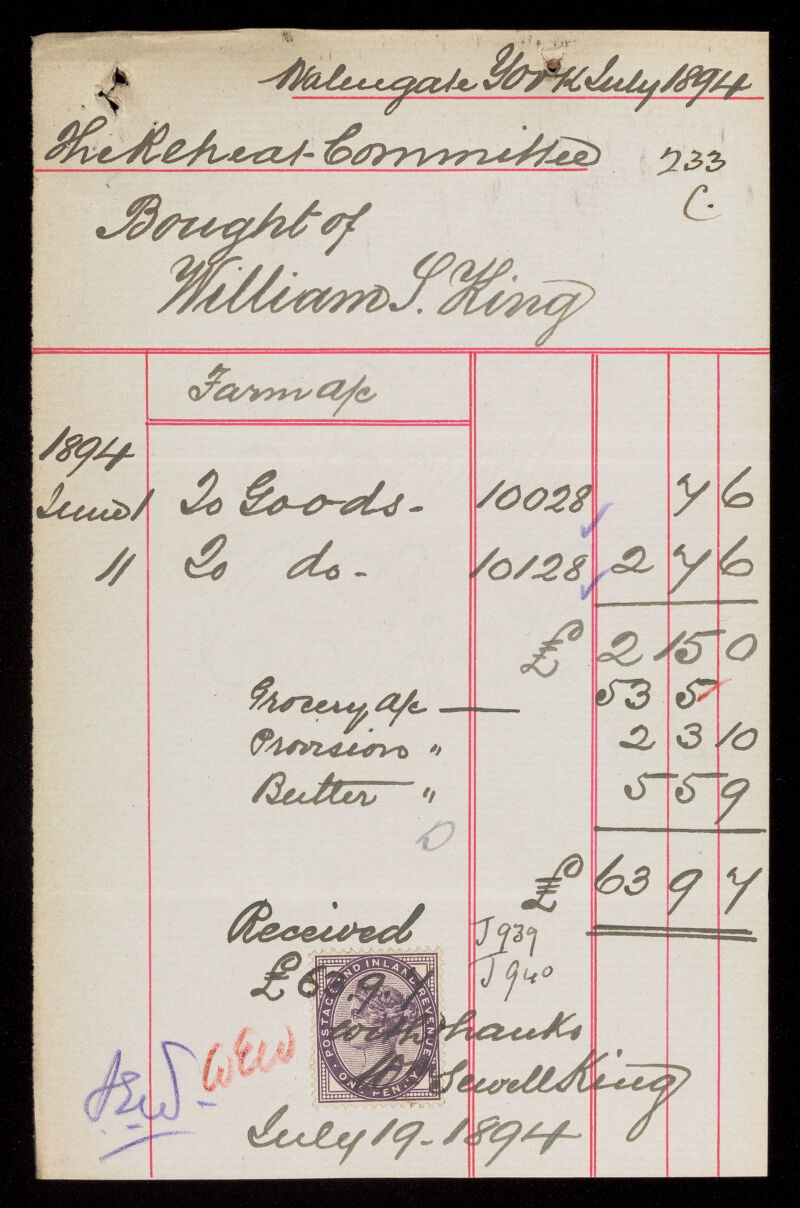 Walmgate York July 1894
The Retreat Committee 233
C.
Bought of
William S. King
Farm a/c
1894
June 1 To Goods - 10028 7 6
11 To do - 10128 2 7 6
£ 2 15 0
Grocery a/c — 53 5
Provision " 2 3 10
Butter " 5 5 9
£ 63 9 7
Received J 939
£63.9.7 J 940
POSTAGE AND INLAND REVENUE
with thanks
ONE PENNY
W Sewell King
WEW
July 19 - 1894